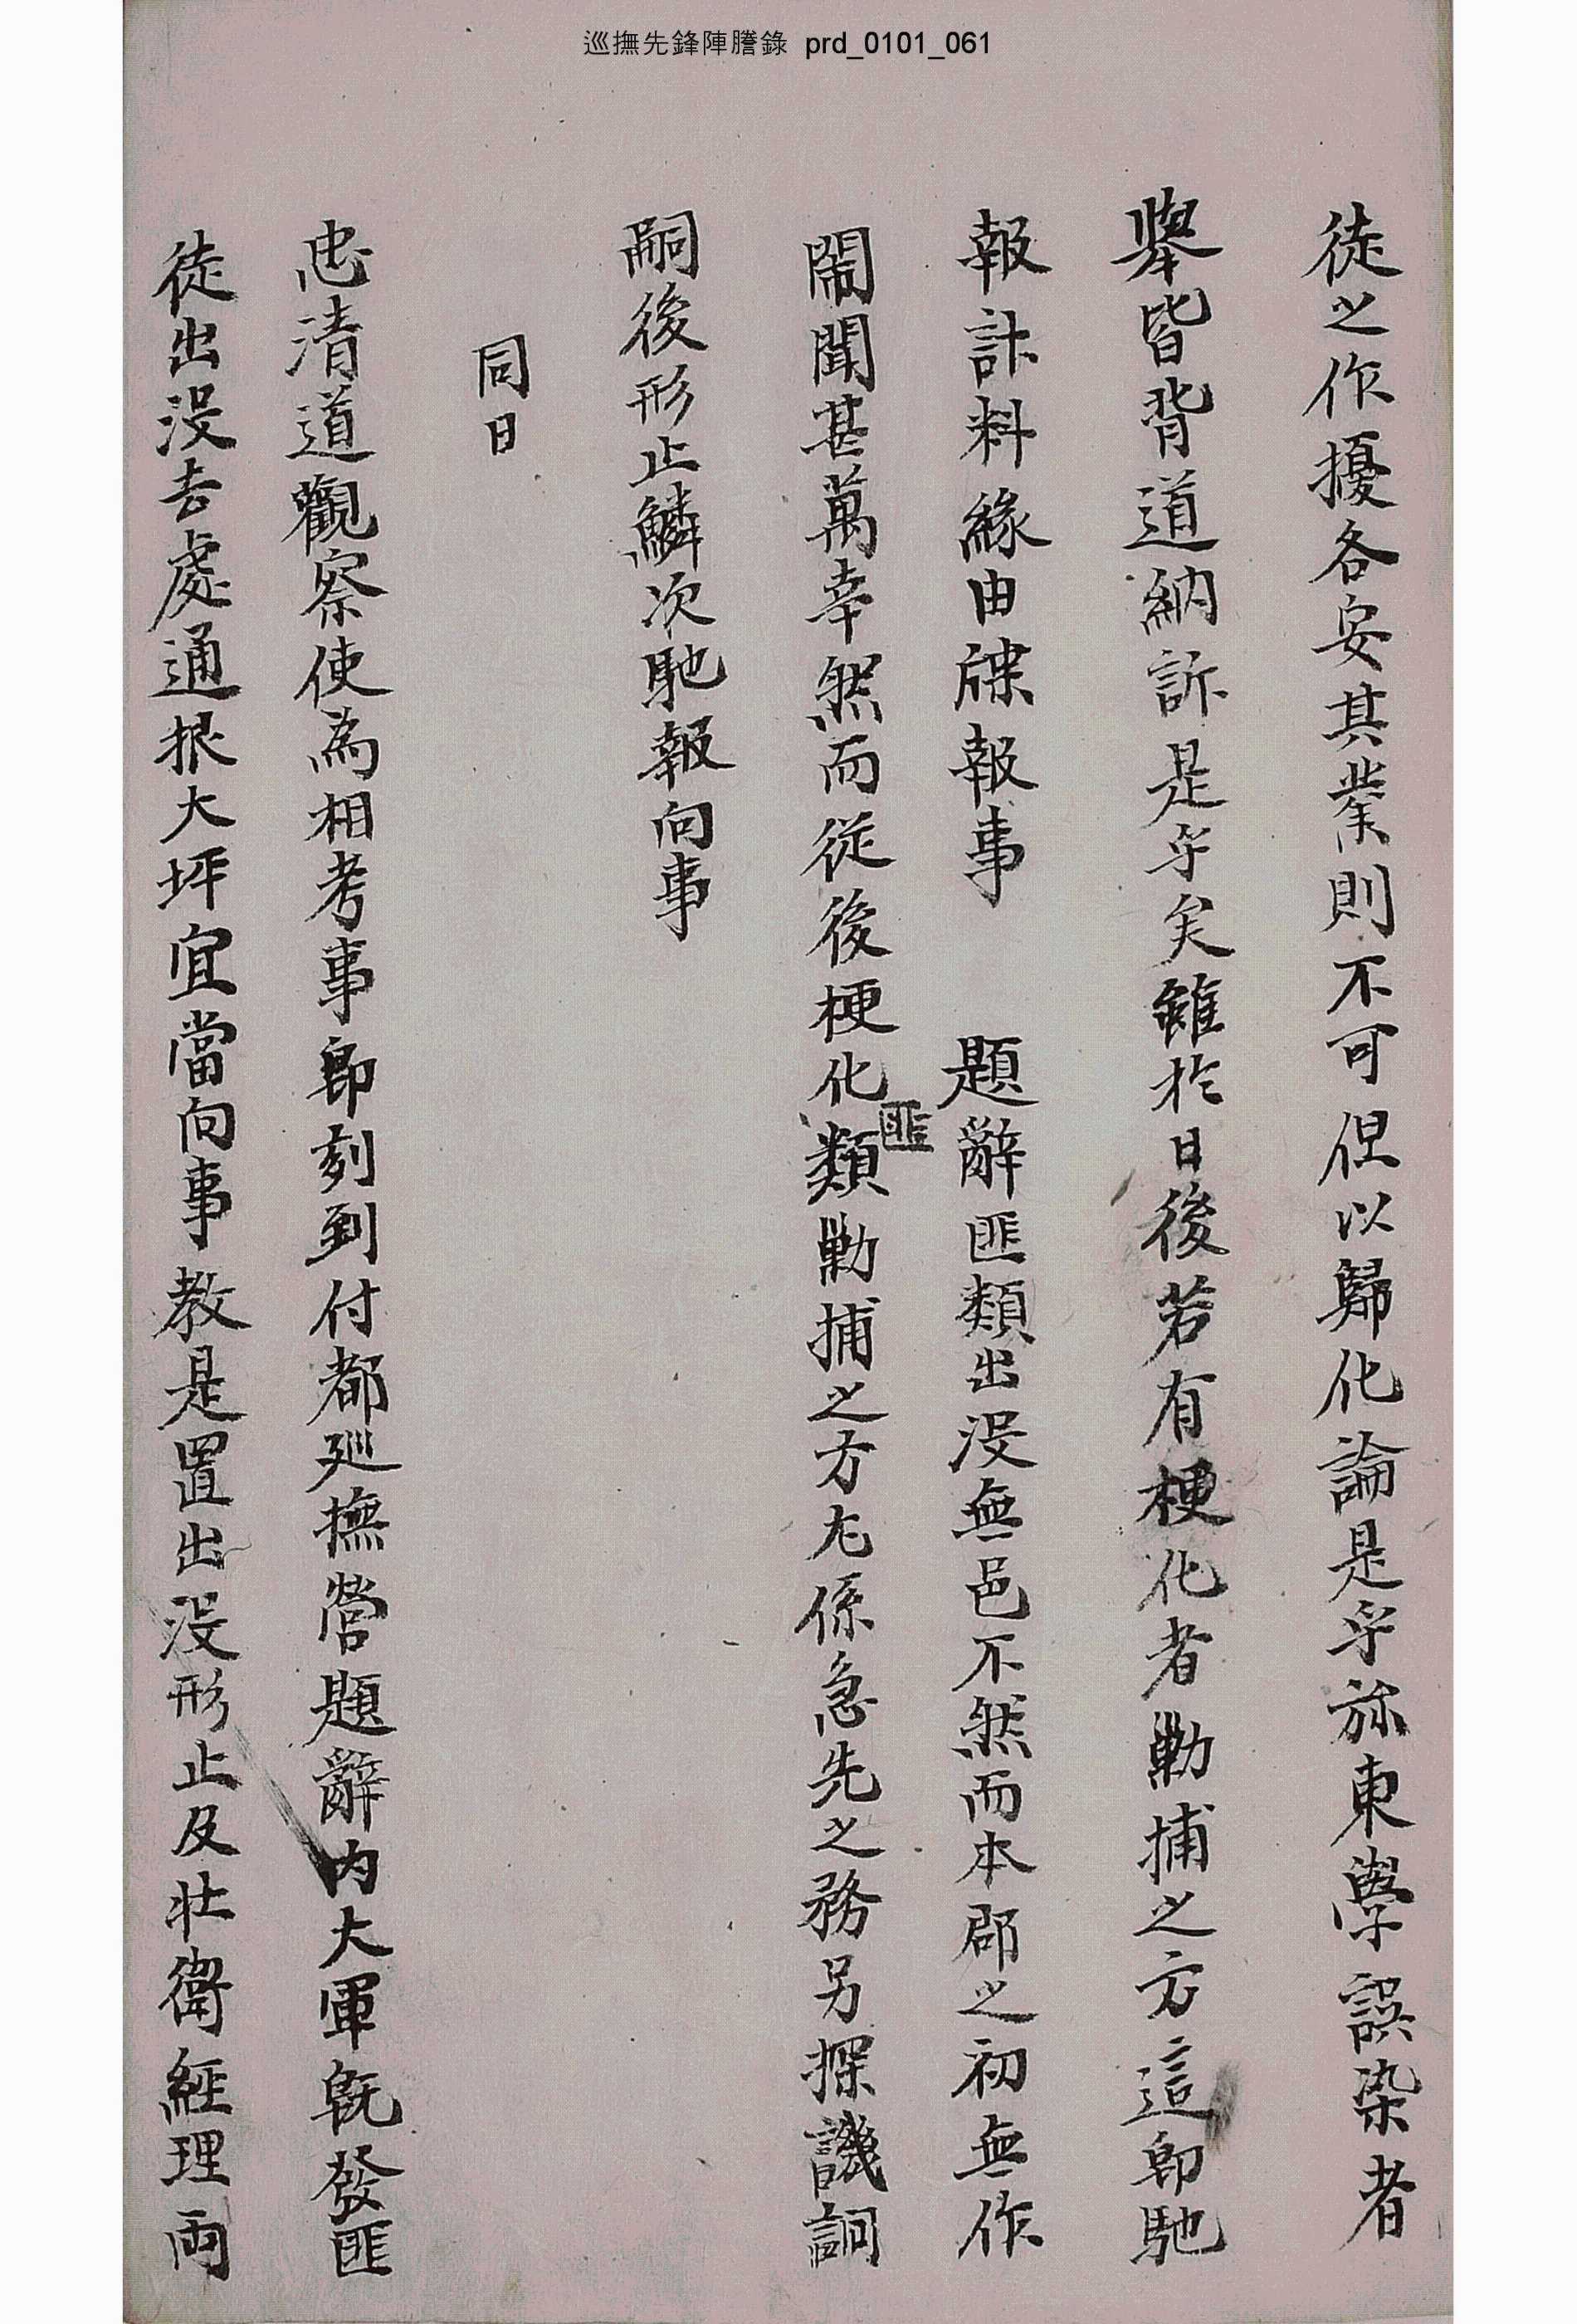 巡撫先鋒陣謄錄 prd_0101_061
徒之作擾各安其業則不可但以歸化論是乎旀東學誤染者
擧皆背道納訴是乎矣雖於日後若有梗化者勦捕之方這卽馳
報計料緣由牒報事 題辭匪類出沒無邑不然而本郡之初無作
鬧聞甚萬幸然而從後梗化匪類勦捕之方尤係急先之務另探譏詗
嗣後形止鱗次馳報向事
同日
忠清道觀察使爲相考事卽刻到付都廵撫營題辭內大軍旣發匪
徒出沒去處通報大坪宜當向事敎是置出沒形止及壯衛經理兩